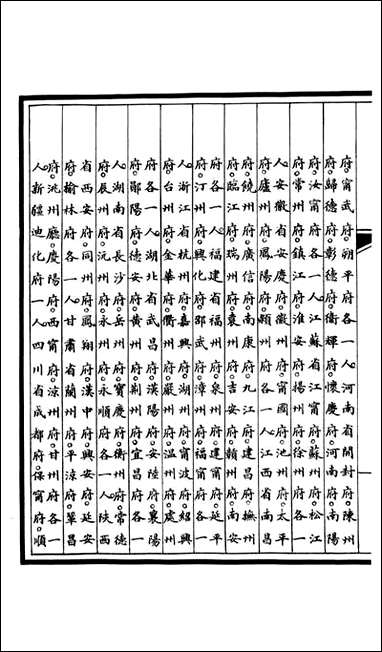 府甯武府朔平府各一人河南省開封府陳州
府歸德府彰德府衞輝府懷慶府河南府南陽
府汝甯府各一人江蘇省江甯府蘇州府松江
府常州府鎮江府淮安府揚州府徐州府各一
人安徽省安慶府徽州府甯國府池州府太平
府廬州府鳳陽府潁州府各一人江西省南昌
府饒州府廣信府南康府九江府建昌府撫州
府臨江府瑞州府袁州府吉安府贛州府南安
府各一人福建省福州府泉州府建甯府延平
府汀州府興化府邵武府漳州府福甯府各一
人浙江省杭州府嘉興府湖州府甯波府紹興
府台州府金華府衢州府嚴州府溫州府處州
府各一人湖北省武昌府漢陽府安陸府襄陽
府鄖陽府德安府黃州府荊州府宜昌府各一
人湖南省長沙府岳州府寶慶府衡州府常德
府辰州府沅州府永州府永順府各一人陝西
省西安府同州府鳳翔府漢中府興安府延安
府榆林府各一人甘肅省蘭州府平涼府鞏昌
府洮州廳慶陽府西甯府涼州府甘州府各一
人新疆迪化府一人四川省成都府保甯府順